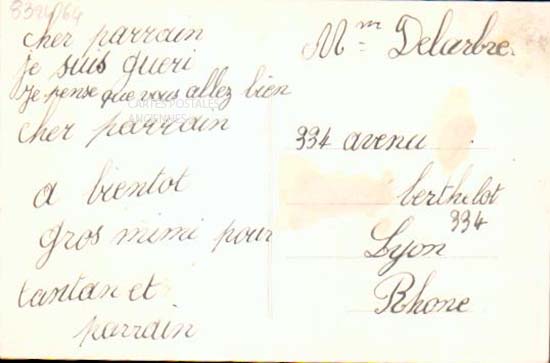 8324064
cher parrain
je suis gueri
je pense que vous allez bien
cher parrain
a bientot
gros mimi pour
tantan et
parrain
CARTES POSTALES
ANCIENNES
Mme Delarbre.
334 avenu
berthelot
334
Lyon
Rhone